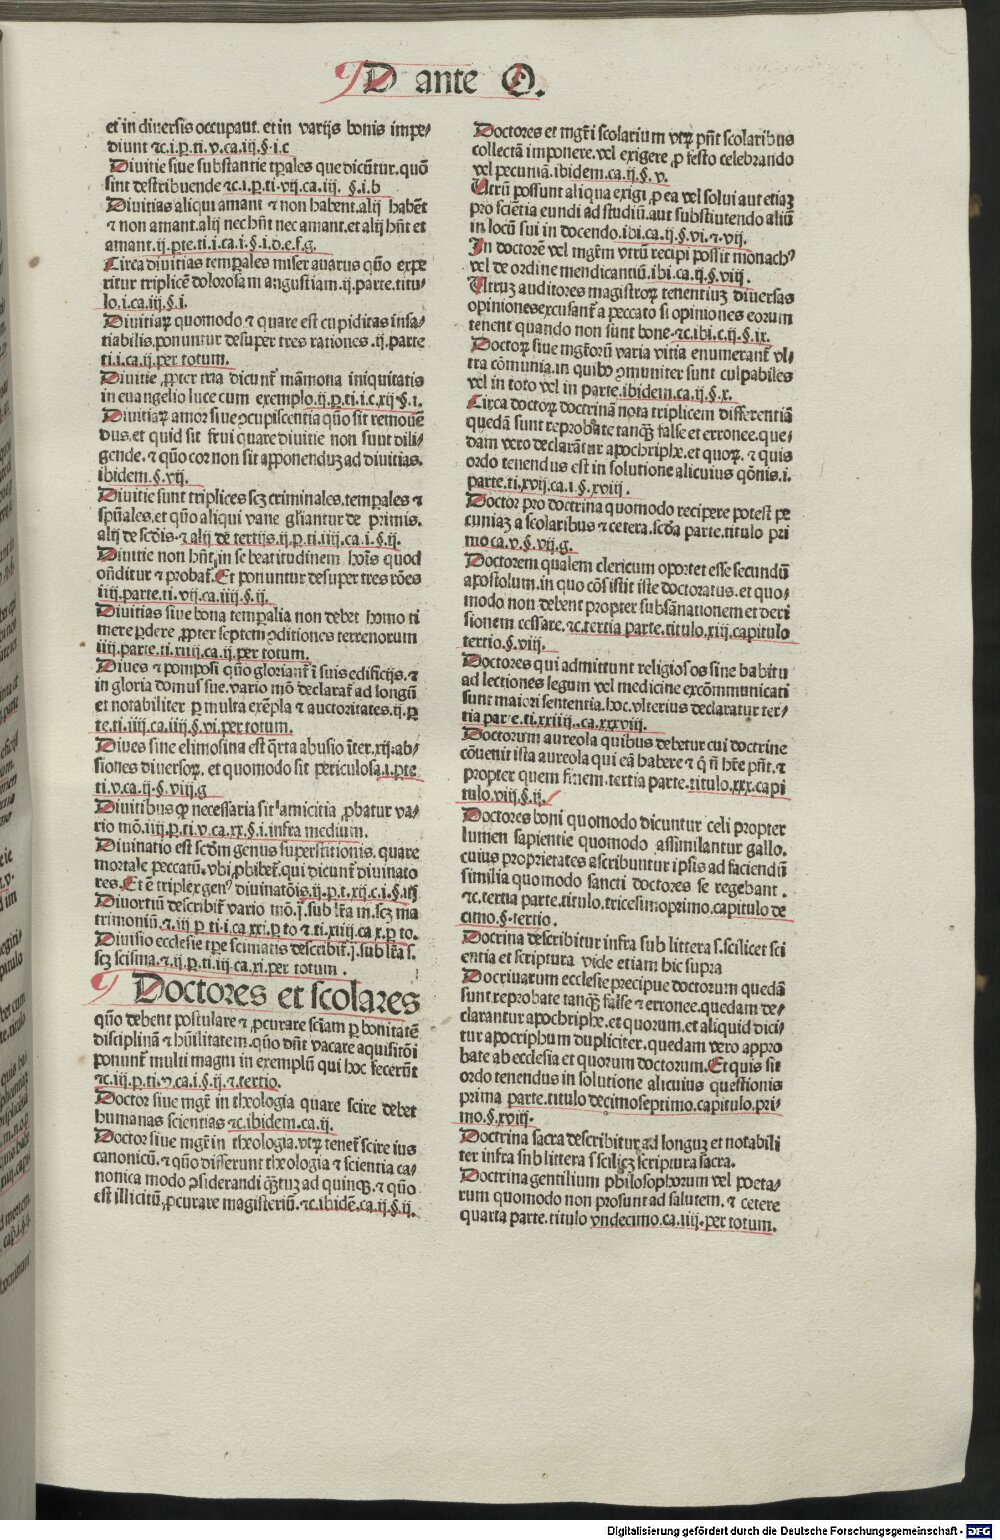 D ante O.
et in diuersis occupant. et in varijs bonis impe⸗
diunt ⁊c.i.p̲.ti.v.ca.iij.§.i.c
Diuitie siue substantie tp̄ales que dicūtur. quō
sint destribuende ⁊c.i.p̲.ti.vij.ca.iij. §.i.b
Diuitias aliqui amant ⁊ non habent. alij habēt
⁊ non amant. alij nec hn̄t nec amant. et alij hn̄t et
amant. ij. p̲te.ti.i.ca.i.§.i.d.e.f.g.
Circa diuitias temp̲ales miser auarus quō expe
ritur triplicē dolorosam angustiam. ij. parte. titu⸗
lo.i.ca.iij.§.i.
Diuitiaꝝ quomodo ⁊ quare est cupiditas insa⸗
tiabilis. ponuntur desuper tres rationes. ij. parte
ti.i.ca.ij. per totum.
Diuitie ꝓpter tria dicunt̄ māmona iniquitatis
in euangelio luce cum exemplo. ij.p̲.ti.i.c.xij.§.i.
Diuitiaꝝ amor siue ꝯcupiscentia quō sit remouē
dus. et quid sit frui quare diuitie non sunt dili⸗
gende. ⁊ quō cor non sit apponenduꝫ ad diuitias.
ibidem.§.vij.
Diuitie sunt triplices scꝫ criminales. temp̲ales ⁊
spūales. et quō aliqui vane gl̄iantur de primis.
alij de scd̄is. ⁊ alij de tertijs. ij.p̲.ti.iiij.ca.i.§.ij.
Diuitie non hn̄t in se beatitudinem hoīs quod
on̄ditur ⁊ probat̄. Et ponuntur desuper tres rōes
iiij. parte. ti.vij.ca.iiij.§.ij.
Diuitias siue bona temp̲alia non debet homo ti
mere p̲dere ꝓpter septem ꝯditiones terrenorum
iiij. parte. ti.xiiij.ca.ij. per totum.
Diues ⁊ pomposi quō gloriant̄ ī suis edificijs. ⁊
in gloria domus sue. vario mō declarat̄ ad longū
et notabiliter p̲ multa exēpla ⁊ auctoritates. ij.p̲
te.ti.iiij.ca.iiij.§.vi. per totum.
Diues sine elimosina est q̄rta abusio īter. xij. ab⸗
siones diuersoꝝ. et quomodo sit periculosa. i. p̲te
ti.v.ca.ij.§.viij.g
Diuitibus ꝙ necessaria sit amicitia ꝓbatur va⸗
rio mō. iiij.p̲.ti.v.ca.xx.§.i. infra medium.
Diuinatio est scd̄m genus superstitionis. quare
mortale peccatū. vbi ꝓhibet̄. qui dicunt̄ diuinato
res. Et ē triplex genꝰ diuinatōis. ij.p̲.t.xij.c.i.§.iij
Diuortiū describit̄ vario mō. j. sub lr̄a m. scꝫ ma
trimoniū. ⁊.iij p̲ ti.i.ca.xxi.p̲ to ⁊ ti.xiiij.ca x.p̲ to.
Diuisio ecclesie tp̄e scismatis describit̄. j. sub lr̄a s.
scꝫ scisma. ⁊.ij.p̲.ti.iij.ca.xi. per totum.
Doctores et scolares
quō debent postulare ⁊ ꝓcurare sciam p̲ bonitatē
disciplinā ⁊ hūilitatem. quō dn̄t vacare aquisitōi
ponunt̄ multi magni in exemplū qui hoc fecerūt
⁊c.iij.p̲.ti.v.ca.i.§.ij.⁊.tertio.
Doctor siue mgr̄ in theologia quare scire debet
humanas scientias ⁊c. ibidem.ca.ij.
Doctor siue mgr̄ in theologia. vtꝝ tenet̄ scire ius
canonicū. ⁊ quō differunt theologia ⁊ scientia ca⸗
nonica modo ꝯsiderandi q̄stuꝫ ad quinqꝫ. ⁊ quō
est illicitū ꝓcurare magisteriū. ⁊c. ibidē.ca.ij.§.ij.
Doctores et mgr̄i scolarium vtꝝ pn̄t scolaribus
collectā imponere. vel exigere ꝓ festo celebrando
vel pecuniā. ibidem.ca.ij.§.v.
Utrū possunt aliqua exigi ꝓ ea vel solui aut etiaꝫ
pro sciētia eundi ad studiū. aut substiutendo aliū
in locū sui in docendo. ibi.ca.ij.§.vi.⁊.vij.
In doctorē vel mgr̄m vtrū recipi possit monachꝰ
vel de ordine mendicantiū. ibi.ca.ij.§.viij.
Utruꝫ auditores magistroꝝ tenentiuꝫ diuersas
opiniones excusant̄ a peccato si opiniones eorum
tenent quando non sunt bone. ⁊c.ibi.c.ij.§.ix.
Doctoꝝ siue mgr̄orū varia vitia enumerant̄ vl⸗
tra cōmunia. in quibꝰ ꝯmuniter sunt culpabiles
vel in toto vel in parte. ibidem.ca.ij.§.x.
Circa doctoꝝ doctrinā nota triplicem differentiā
quedā sunt reprobate tanqꝫ false et erronee. que⸗
dam vero declarātur apochriphe. et quoꝝ. ⁊ quis
ordo tenendus est in solutione alicuius qōnis. i.
parte. ti.xvij.ca.i.§.xviij.
Doctor pro doctrina quomodo recipere potest pe
cuniaꝫ a scolaribus ⁊ cetera. scd̄a parte. titulo pri
mo ca.v.§.vij.g.
Doctorem qualem clericum oportet esse secundū
apostolum. in quo cōsistit iste doctoratus. et quo⸗
modo non debent propter subsānationem et deri
sionem cessare. ⁊c. tertia parte. titulo. xiij. capitulo
tertio.§.viij.
Doctores qui admittunt religiosos sine habitu
ad lectiones legum vel medicine excōmmunicati
sunt maiori sententia. hoc. vlterius declaratur ter⸗
tia parte. ti.xxiiij.ca.xxxviij.
Doctorum aureola quibus debetur cui doctrine
cōuenit ista aureola qui eā habere ⁊ q̄ n̄ hr̄e pn̄t. ⁊
propter quem finem. tertia parte. titulo. xxx. capi
tulo. viij.§.ij.
Doctores boni quomodo dicuntur celi propter
lumen sapientie quomodo assimilantur gallo.
cuius proprietates ascribuntur ipsis ad faciendū
similia quomodo sancti doctores se regebant.
⁊c. tertia parte. titulo. tricesimoprimo. capitulo de
cimo.§. tertio.
Doctrina describitur infra sub littera s. scilicet sci
entia et scriptura vide etiam hic supra
Doctrinarum ecclesie precipue doctorum quedā
sunt reprobate tanqꝫ false ⁊ erronee. quedam de⸗
clarantur apochriphe. et quorum. et aliquid dici⸗
tur apocriphum dupliciter. quedam vero appro
bate ab ecclesia et quorum doctorum. Et quis sit
ordo tenendus in solutione alicuius questionis
prima parte. titulo decimoseptimo. capitulo. pri⸗
mo.§.xviij.
Doctrina sacra describitur ad longuꝫ et notabili
ter infra sub littera s scilicꝫ scriptura sacra.
Doctrina gentilium philosophorum vel poeta⸗
rum quomodo non prosunt ad salutem. ⁊ cetere
quarta parte. titulo vndecimo. ca.iiij. per totum.
Digitalisierung gefördert durch die Deutsche Forschungsgemeinschaft - DFG